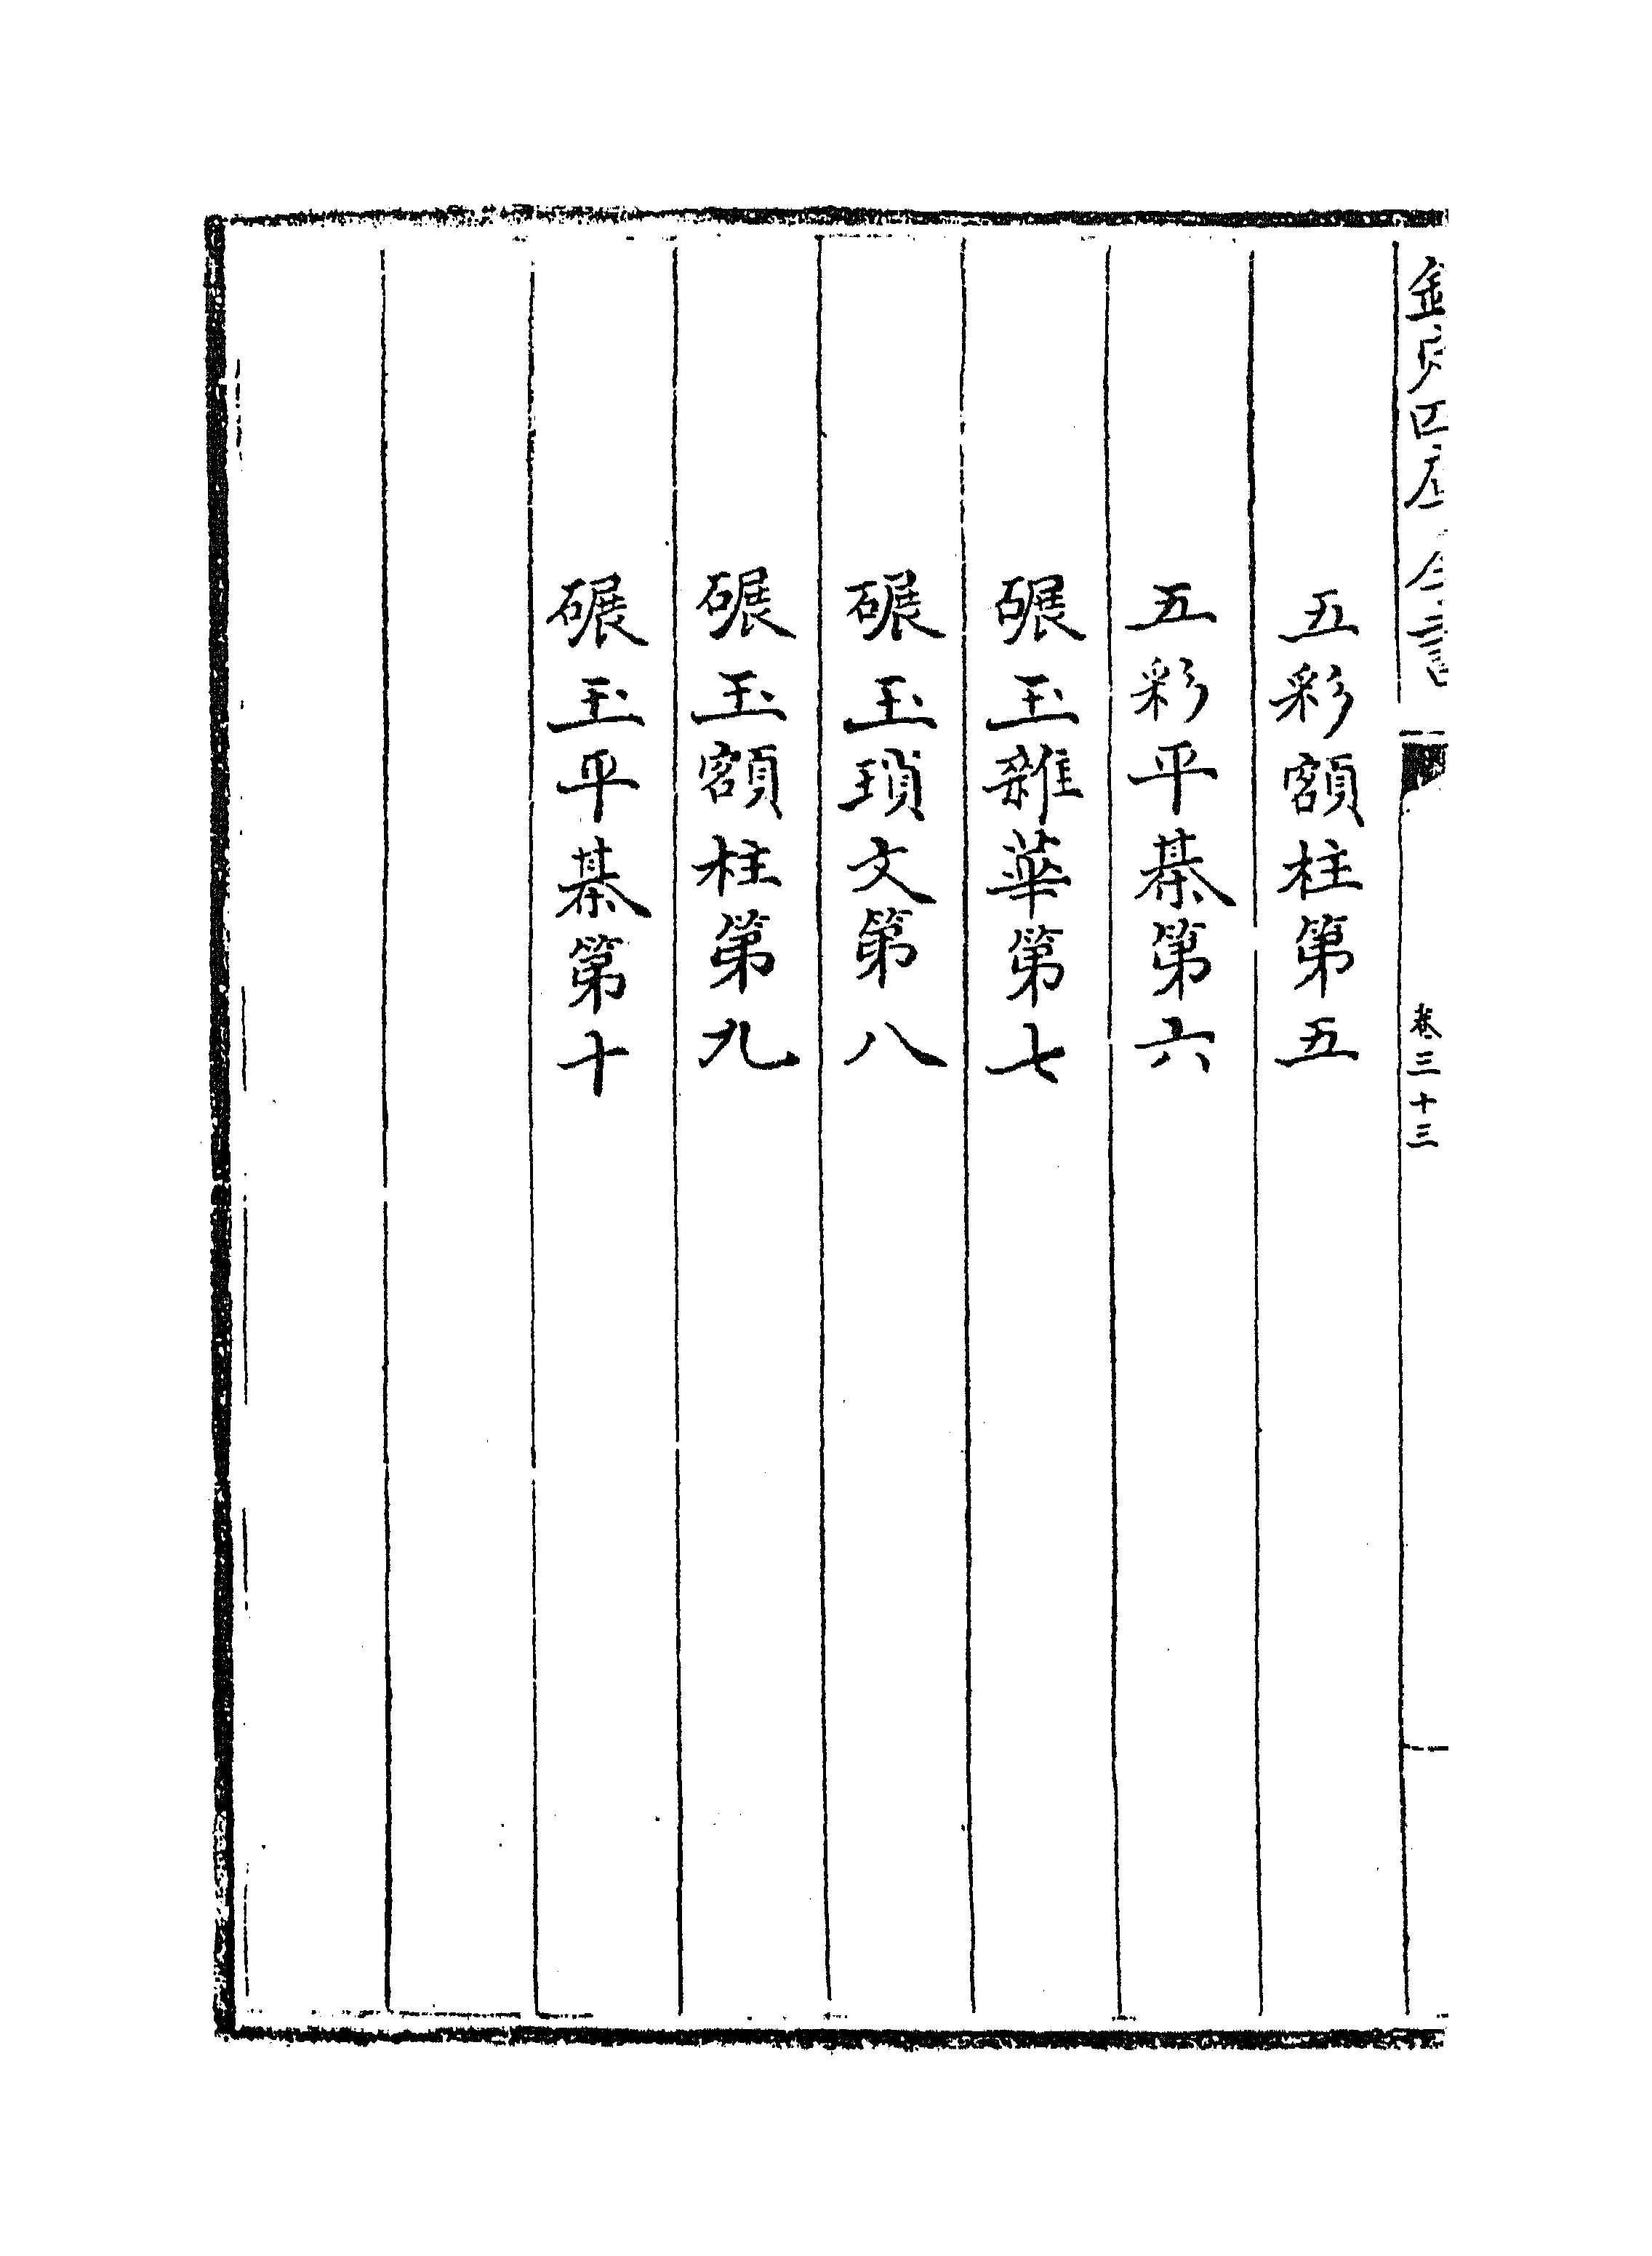 欽定四庫全書
卷三十三
五彩額柱第五
五彩平棊第六
碾玉雜華第七
碾玉瑣文第八
碾玉額柱第九
碾玉平棊第十